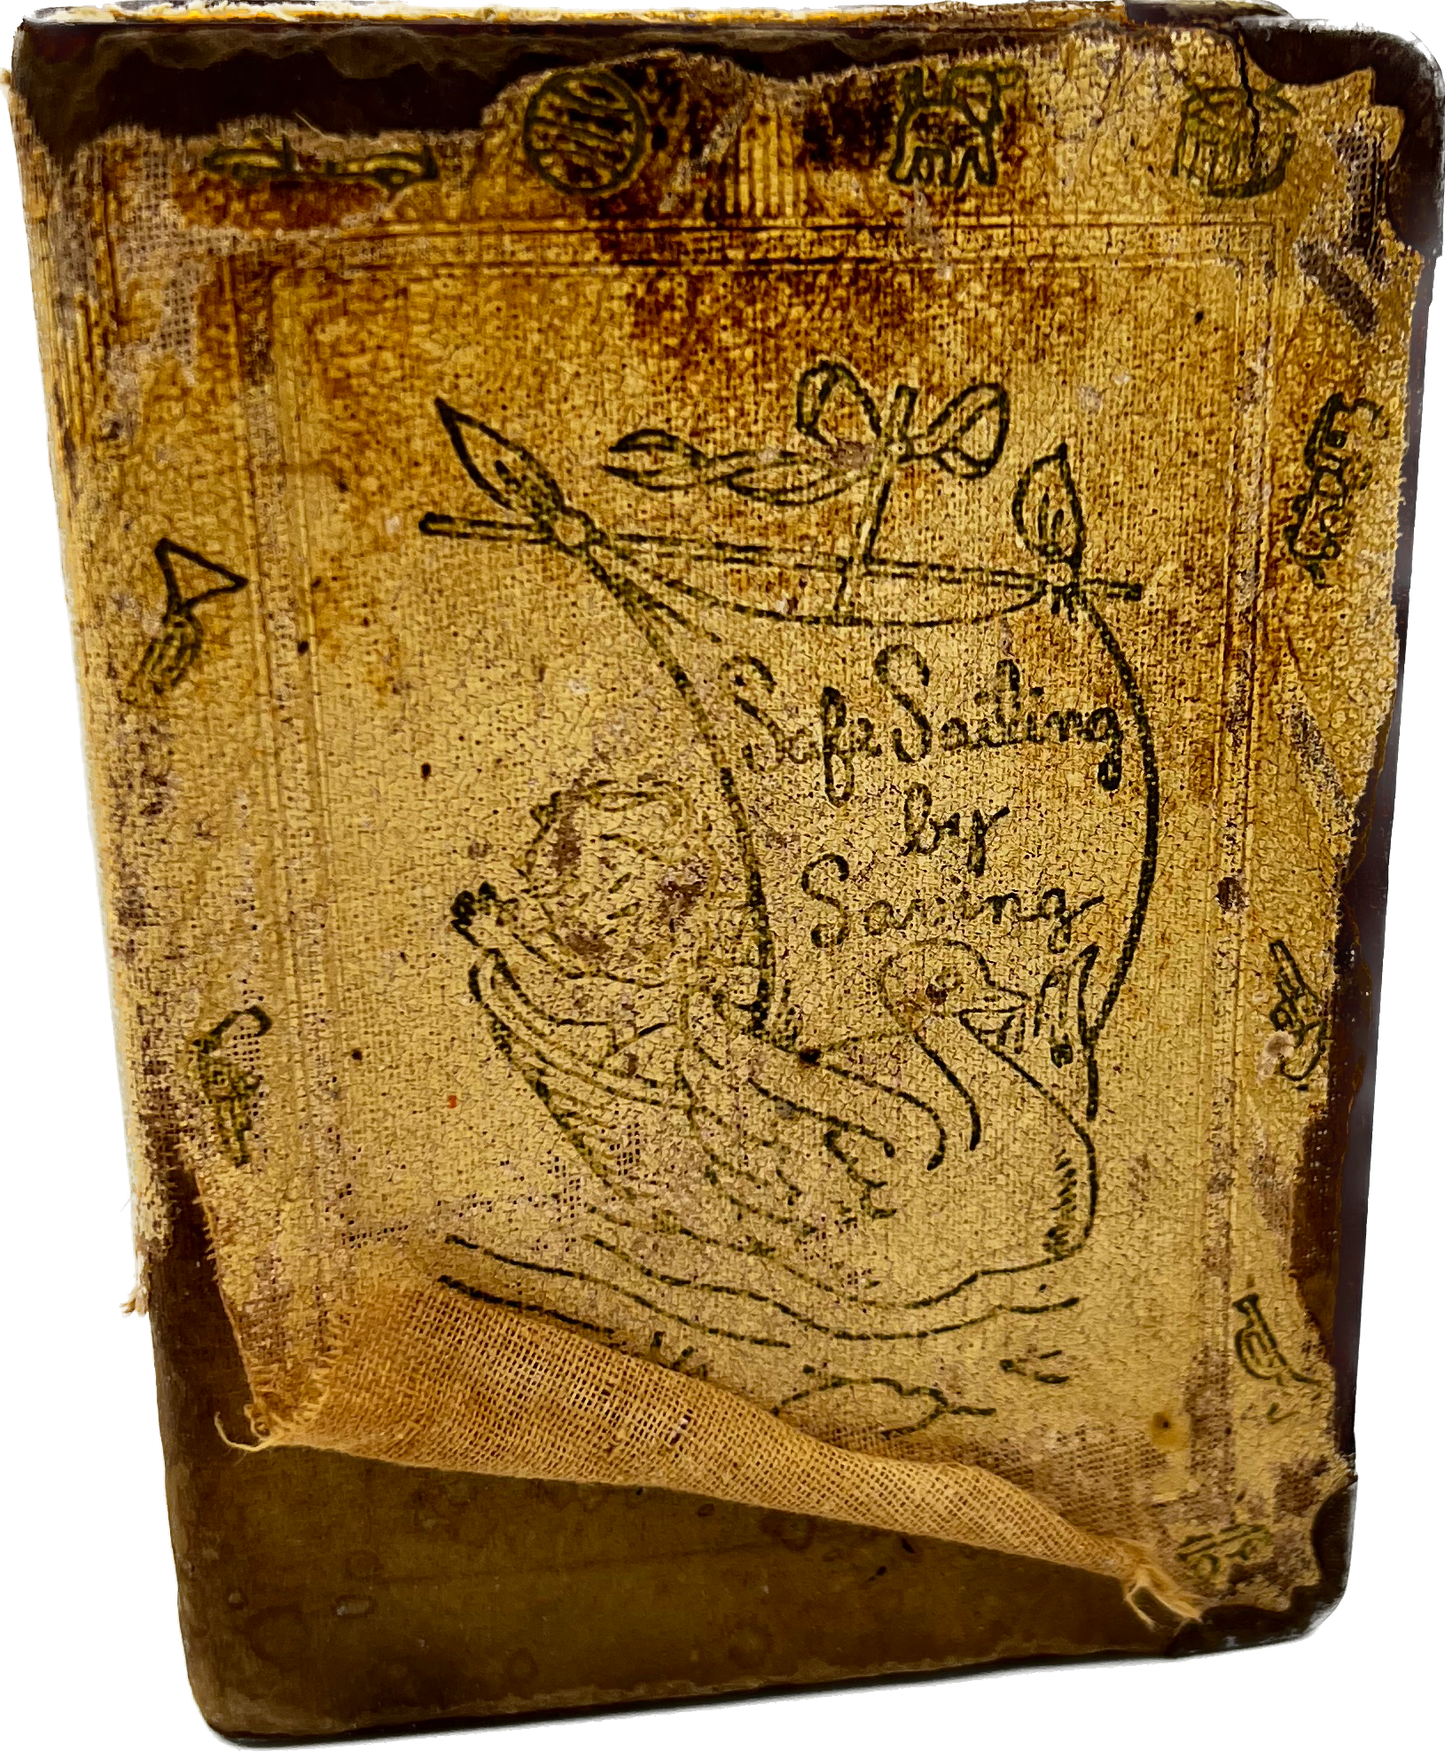 Safe Sailing
by
Saving